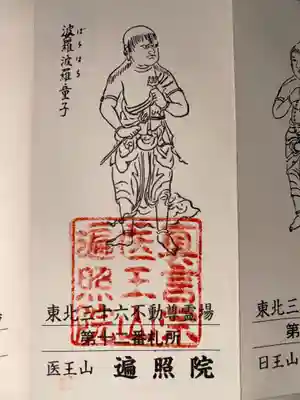 波羅波羅童子
真言宗
医王山
遍照院
東北三十六不動尊霊場
第十二番札所
医王山 遍照院
東北三
日王山